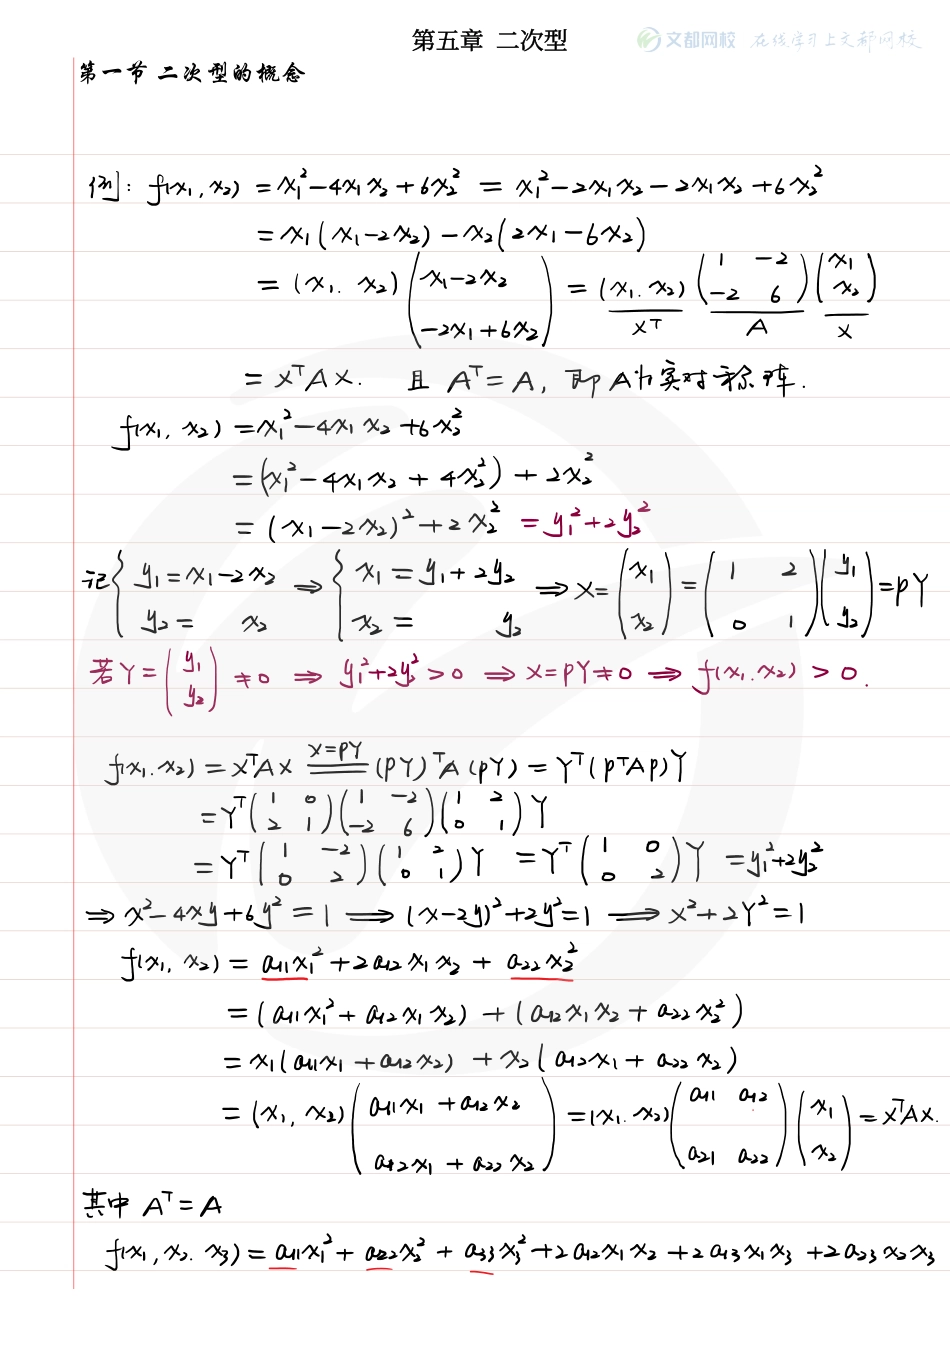 第五章 二次型
文都网校 在线学习上文都网校
第一节 二次型的概念
例: f(x₁, x₂) = x₁² − 4x₁x₂ + 6x₂² = x₁² − 2x₁x₂ − 2x₁x₂ + 6x₂²
= x₁(x₁ − 2x₂) − x₂(2x₁ − 6x₂)
= (x₁, x₂) ( x₁ − 2x₂ ; −2x₁ + 6x₂ ) = (x₁, x₂) ( 1 −2 ; −2 6 ) ( x₁ ; x₂ )
Xᵀ A X
= XᵀAX. 且 Aᵀ = A, 即 A为实对称阵.
f(x₁, x₂) = x₁² − 4x₁x₂ + 6x₂²
= (x₁² − 4x₁x₂ + 4x₂²) + 2x₂²
= (x₁ − 2x₂)² + 2x₂² = y₁² + 2y₂²
记 { y₁ = x₁ − 2x₂ ; y₂ = x₂ ⇒ { x₁ = y₁ + 2y₂ ; x₂ = y₂ ⇒ X = ( x₁ ; x₂ ) = ( 1 2 ; 0 1 ) ( y₁ ; y₂ ) = PY
若 Y = ( y₁ ; y₂ ) ≠ 0 ⇒ y₁² + 2y₂² > 0 ⇒ X = PY ≠ 0 ⇒ f(x₁, x₂) > 0.
f(x₁, x₂) = XᵀAX X=PY (PY)ᵀA(PY) = Yᵀ(PᵀAP)Y
= Yᵀ ( 1 0 ; 2 1 ) ( 1 −2 ; −2 6 ) ( 1 2 ; 0 1 ) Y
= Yᵀ ( 1 −2 ; 0 2 ) ( 1 2 ; 0 1 ) Y = Yᵀ ( 1 0 ; 0 2 ) Y = y₁² + 2y₂²
⇒ x² − 4xy + 6y² = 1 ⇒ (x − 2y)² + 2y² = 1 ⇒ X² + 2Y² = 1
f(x₁, x₂) = a₁₁x₁² + 2a₁₂x₁x₂ + a₂₂x₂²
= (a₁₁x₁² + a₁₂x₁x₂) + (a₁₂x₁x₂ + a₂₂x₂²)
= x₁(a₁₁x₁ + a₁₂x₂) + x₂(a₁₂x₁ + a₂₂x₂)
= (x₁, x₂) ( a₁₁x₁ + a₁₂x₂ ; a₁₂x₁ + a₂₂x₂ ) = (x₁, x₂) ( a₁₁ a₁₂ ; a₂₁ a₂₂ ) ( x₁ ; x₂ ) = XᵀAX.
其中 Aᵀ = A
f(x₁, x₂, x₃) = a₁₁x₁² + a₂₂x₂² + a₃₃x₃² + 2a₁₂x₁x₂ + 2a₁₃x₁x₃ + 2a₂₃x₂x₃